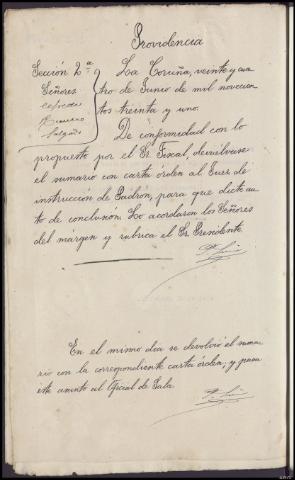 Providencia
Sección 2ª
Señores
La Coruña, veinte y cua
tro de Junio de mil novecien
tos treinta y uno.
De conformidad con lo
propuesto por el Sr. Fiscal, devuélvase
el sumario con carta orden al Juez de
instrucción de Padrón, para que dicte au
to de conclusión. Lo acordaron los Señores
del márgen y rubrica el Sr. Presidente
En el mismo dia se devolvió el suma
rio con la correspondiente carta órden, y pasa
este asunto al Oficial de Sala.